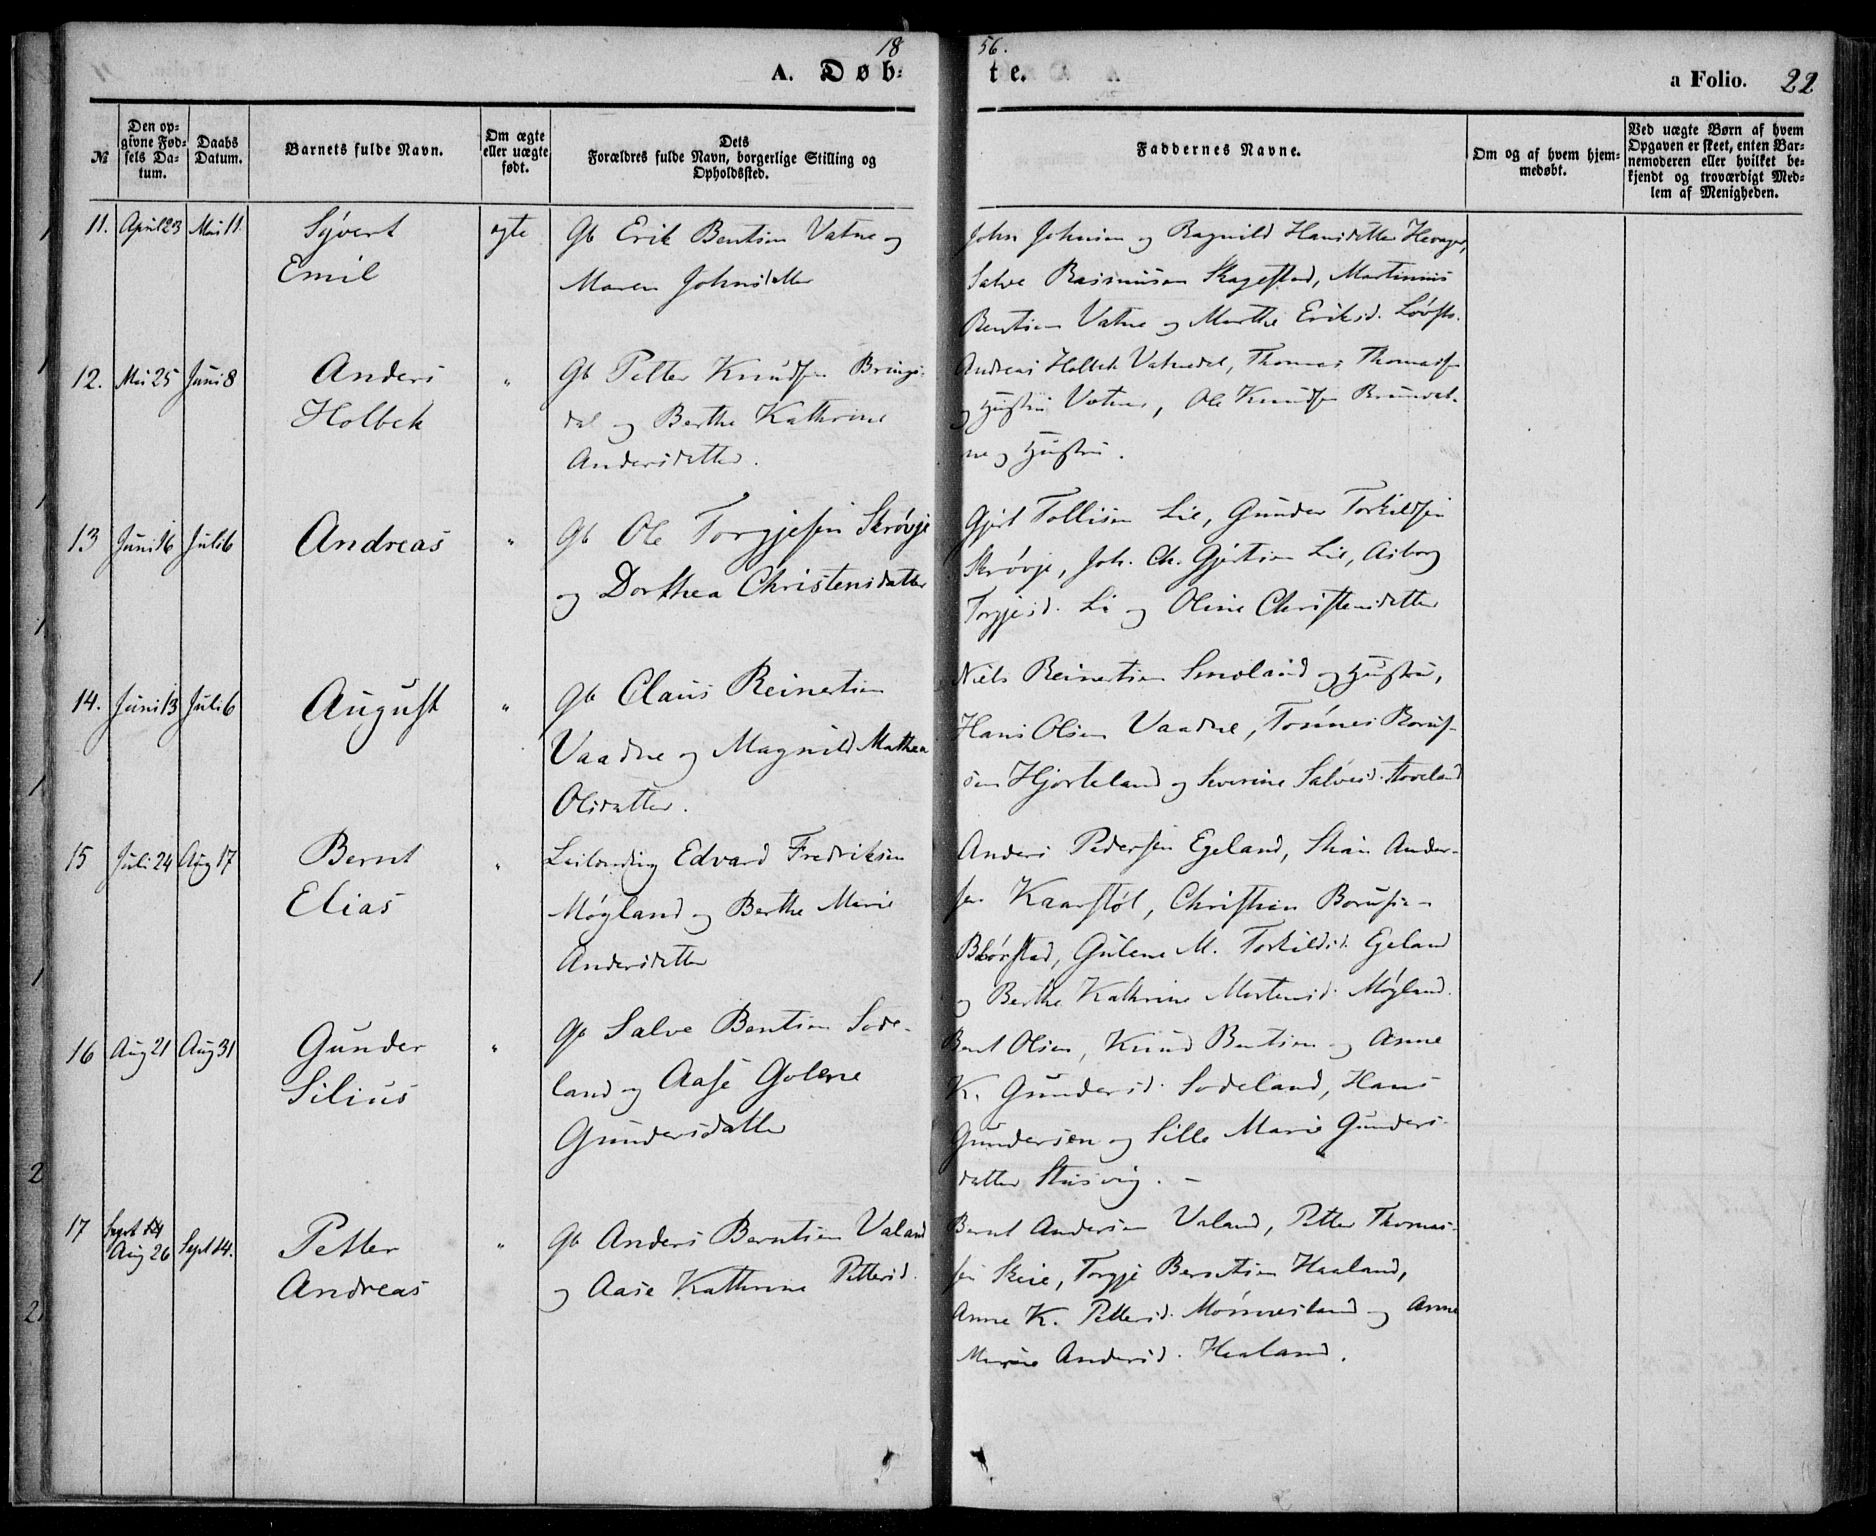 18 56.
A. Døb- te. a Folio. 22
№
Den op-
givne Fød-
sels Da-
tum.
Daabs
Datum.
Barnets fulde Navn.
Om ægte
eller uægte
født.
Dets
Forældres fulde Navn, borgerlige Stilling og
Opholdssted.
Faddernes Navne.
Om og af hvem hjem-
medøbt.
Ved uægte Børn af hvem
Opgaven er skeet, enten Bar-
nemoderen eller hvilket be-
kjendt og troværdigt Med-
lem af Menigheden.
11. April 23 Mai 11. Syvert
Emil
ægte
Gb Erik Bentsen Vatne og
Maren Johnsdatter
John Johnsen og Ragnild Hansdatter
Salve Rasmussen Skagestad, Martinius
Bentsen Vatne og Marthe Eriksd.
12. Mai 25 Juni 8 Anders
Holbek
"
Gb Petter Knudsen Brings-
dal og Berthe Kathrine
Andersdatter.
Andreas Holbek Vatnedal, Thomas Thomassen
og Hustru Vatne, Ole Knudsen Brunvat-
ne og Hustru.
13 Juni 16 Juli 6 Andreas
"
Gb Ole Torgjesen Skrøvje
og Dorthea Christensdatter
Gjert Tollisen Lie, Gunder Torkildsen
Skrøvje, Joh. Ch. Gjertsen Lie, Asborg
Torgjesd. Li og Oline Christensdatter
14. Juni 13 Juli 6 August
"
Gb Claus Reinertsen
Vaadne og Magnild Mathea
Olsdatter.
Niels Reinertsen Smoland og Hustru,
Hans Olsen Vaadne, Tønnes Borufs-
sen Hjorteland og Severine Salvesd. Hoveland
15 Juli 24 Aug 17 Bernt
Elias
"
Leilending Edvard Fredriksen
Møgland og Berthe Marie
Andersdatter
Anders Pedersen Egeland, Ander-
sen Kaarstøl, Christian
Gulene M. Torkildsd. Egeland
og Berthe Kathrine Mortensd. Møgland.
16 Aug 21 Aug 31 Gunder
Silius
"
Gb Salve Bentsen Sode-
land og Aase Golene
Gundersdatter
Bent Olsen, Knud Bentsen og Anne
K. Gundersd. Sodeland, Hans
Gundersen og Sille Marie Gunders-
datter Stusvig. -
17 Sept 14
Aug 26 Sept 14. Petter
Andreas
"
Gb Anders Berntsen Valand
og Aase Kathrine Pettersd.
Bernt Andersen Valand, Petter Thomas-
sen Skeie, Torgje Berntsen Haaland,
Anne K. Pettersd. Mønnesland og Anne
Marie Andersd. Haaland.